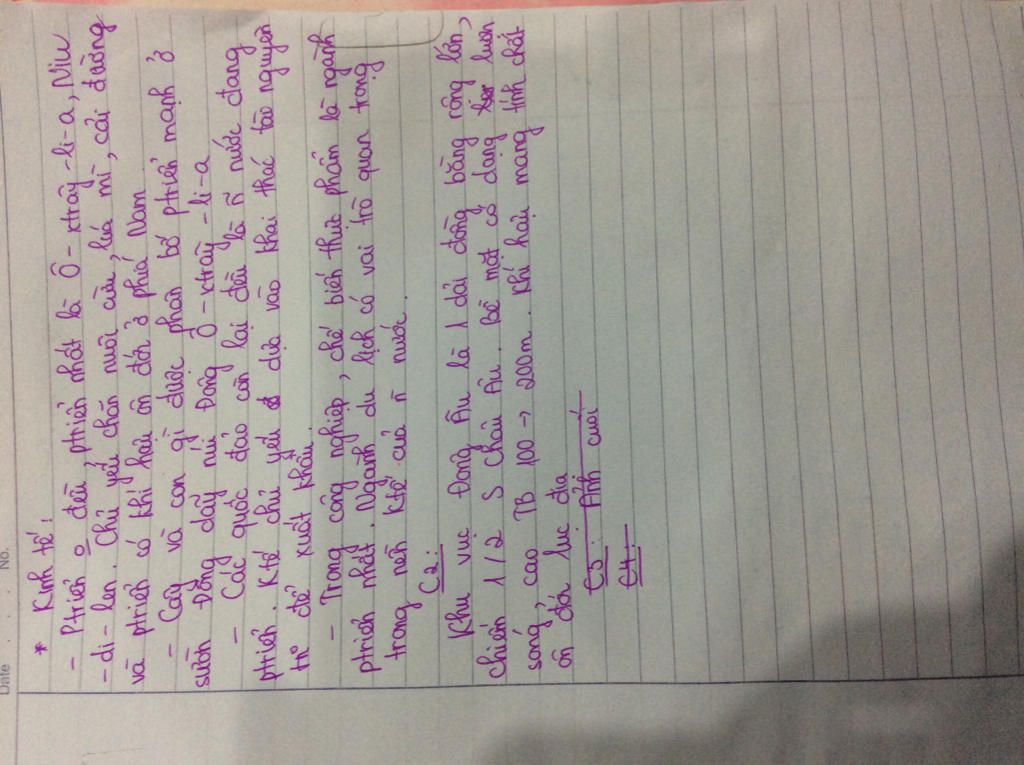 Date No.
* Kinh tế:
- Ptriển o đều, ptriển nhất là Ô-xtrây-li-a, Niu
-di-len. Chủ yếu chăn nuôi cừu, lúa mì, củ cải đường
và ptriển có khí hậu ôn đới ở phía Nam.
- Cây và con gì được phân bố ptriển mạnh ở
sườn Đông dãy núi Đông Ô-xtrây-li-a
- Các quốc đảo còn lại đều là ñ nước đang
ptriển. Ktế chủ yếu dựa vào khai thác tài nguyên
tn để xuất khẩu.
- Trong công nghiệp, chế biến thực phẩm là ngành
ptriển nhất. Ngành du lịch có vai trò quan trọng
trong nền ktế của ñ nước.
C2:
Khu vực Đông Âu là 1 dải đồng bằng rộng lớn,
chiếm 1/2 S châu Âu. Bề mặt có dạng lượn
sóng, cao TB 100 → 200m. Khí hậu mang tính chất
ôn đới lục địa
C3: Ảnh cuối
C4: